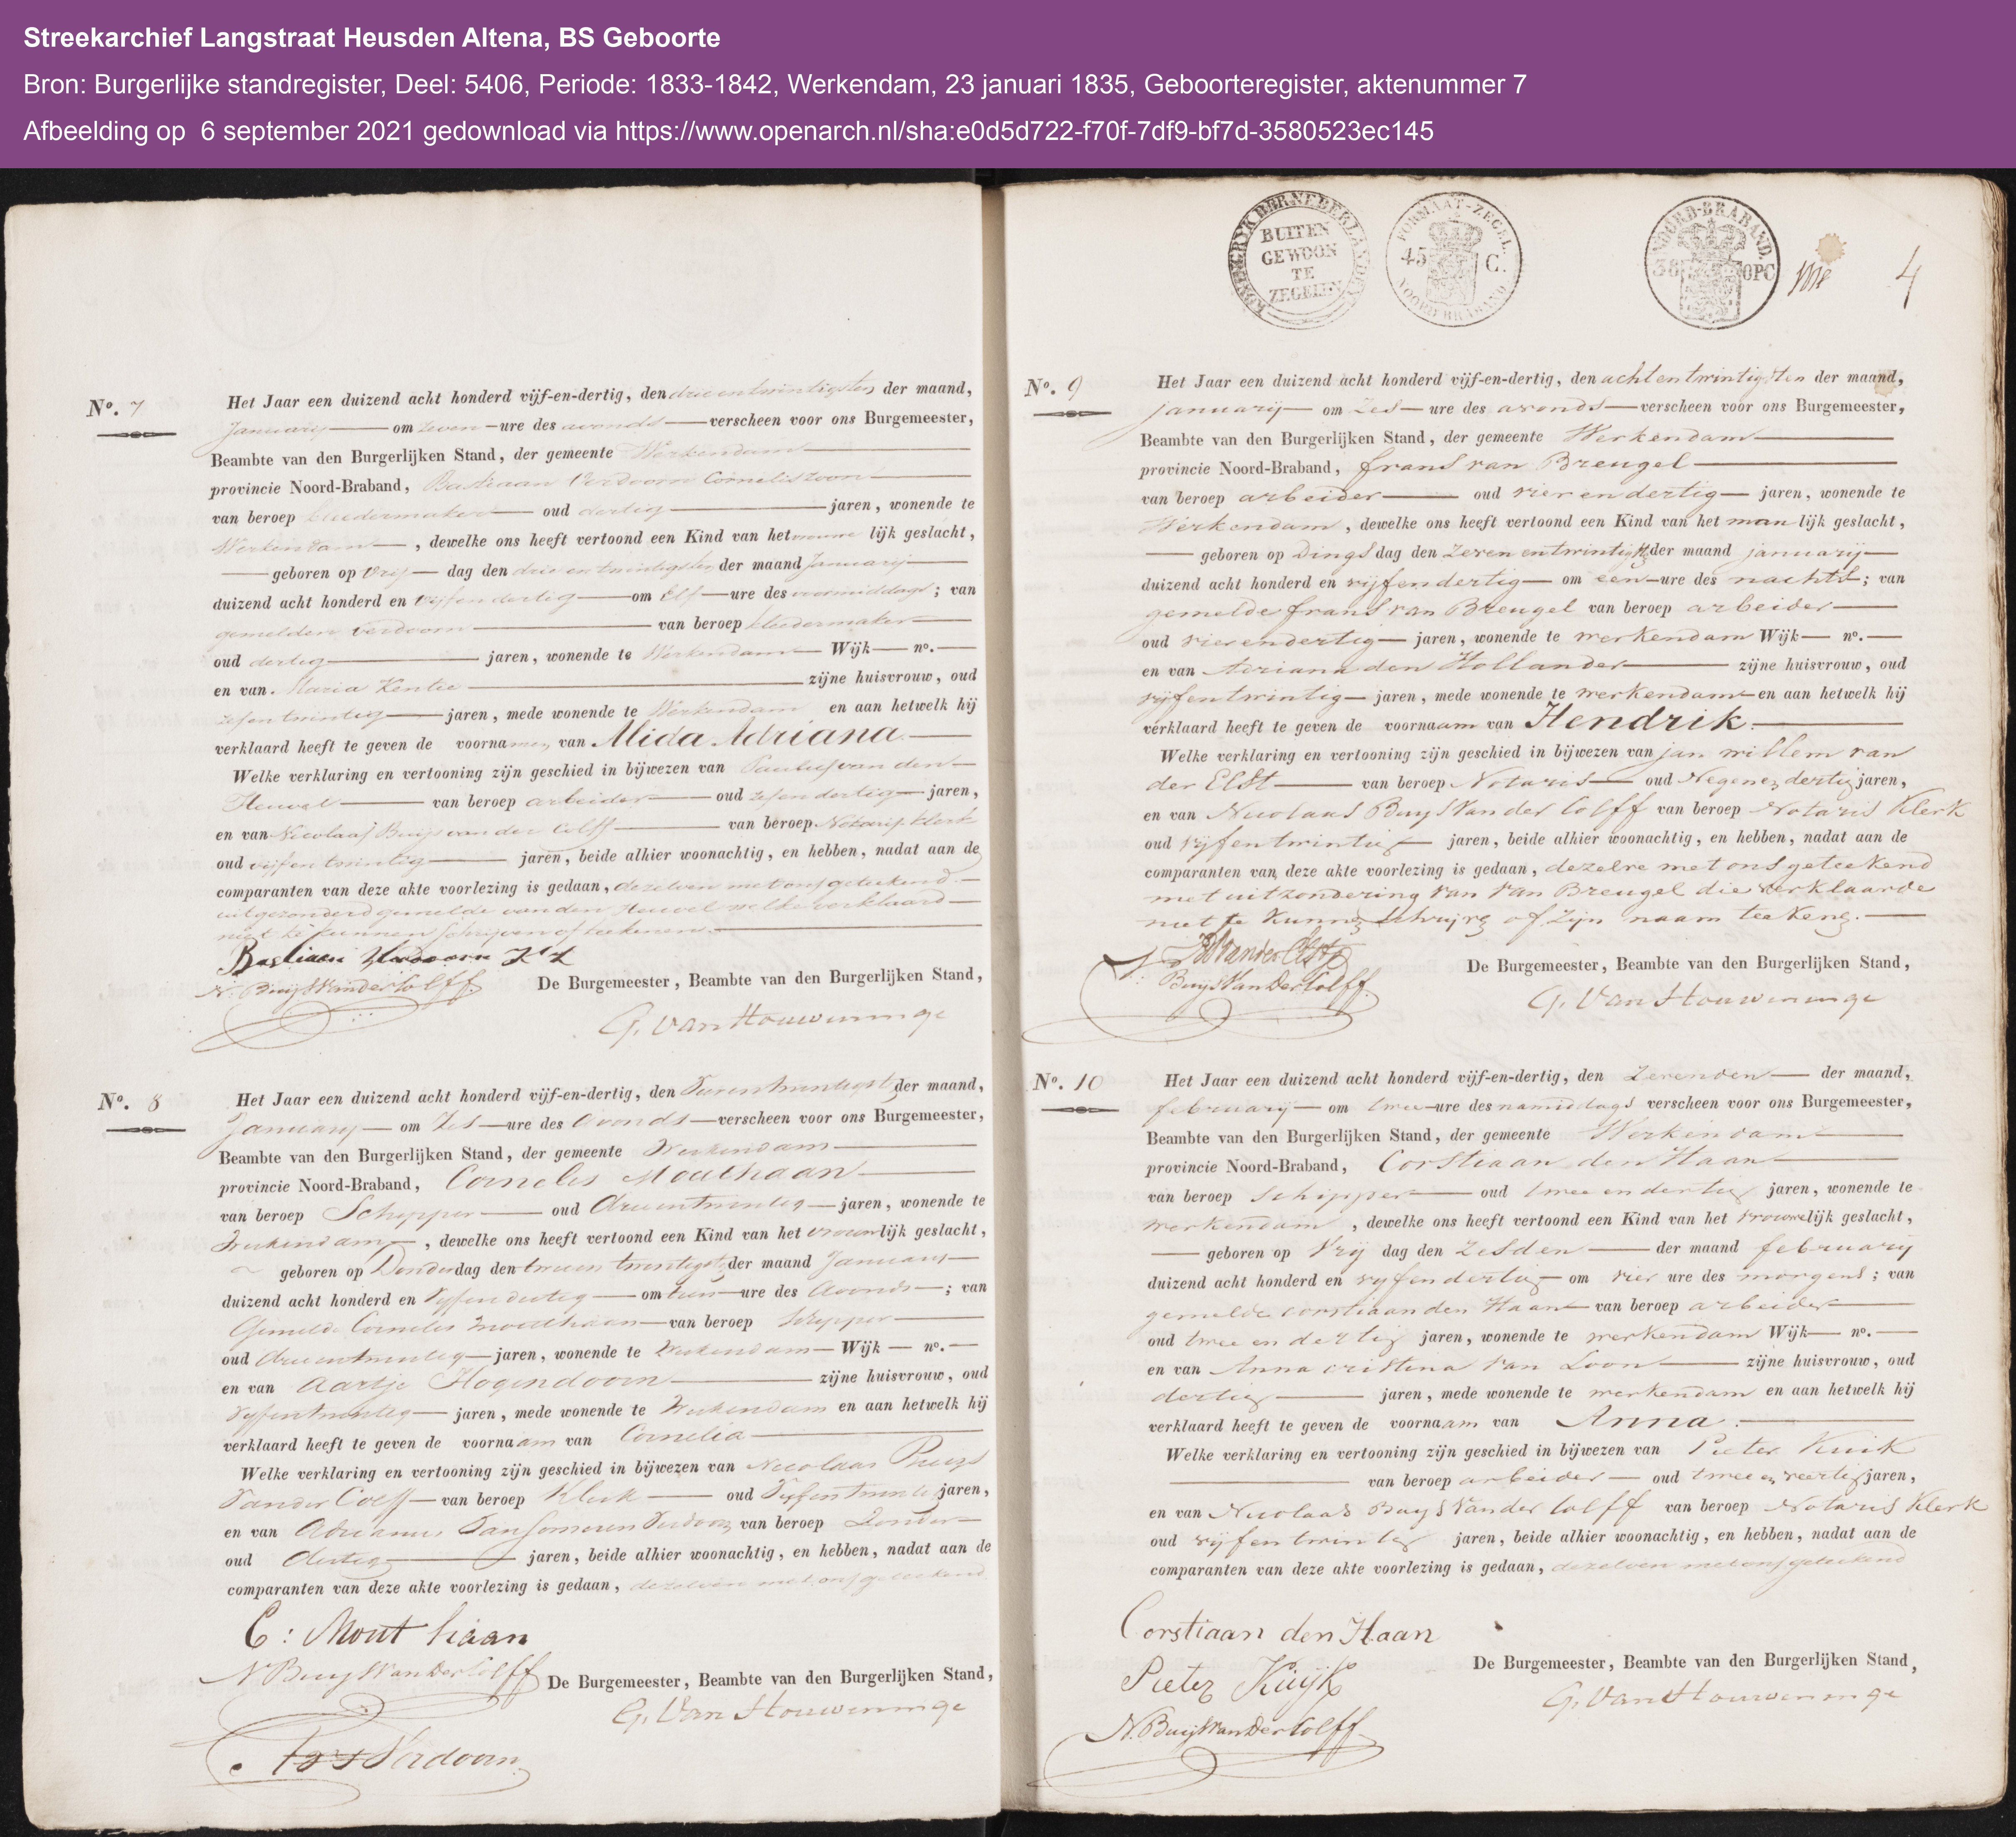 Streekarchief Langstraat Heusden Altena, BS Geboorte
Bron: Burgerlijke standregister, Deel: 5406, Periode: 1833-1842, Werkendam, 23 januari 1835, Geboorteregister, aktenummer 7
Afbeelding op 6 september 2021 gedownload via https://www.openarch.nl/sha:e0d5d722-f70f-7df9-bf7d-3580523ec145
No. 7
Het Jaar een duizend acht honderd vijf-en-dertig, den drieentwintigsten der maand,
Januarij om zeven ure des avonds verscheen voor ons Burgemeester,
Beambte van den Burgerlijken Stand, der gemeente Werkendam
provincie Noord-Braband, Bastiaan Verdoorn Corneliszoon
van beroep kleedermaker oud dertig jaren, wonende te
Werkendam, dewelke ons heeft vertoond een Kind van het vrouwe lijk geslacht,
geboren op Vrij dag den drie en twintigsten der maand Januarij
duizend acht honderd en vijfen dertig om Elf ure des voormiddags; van
gemelden Verdoorn van beroep kleedermaker
oud dertig jaren, wonende te Werkendam Wijk no.
en van Maria Kentie zijne huisvrouw, oud
zesentwintig jaren, mede wonende te Werkendam en aan hetwelk hij
verklaard heeft te geven de voornamen van Alida Adriana
Welke verklaring en vertooning zijn geschied in bijwezen van Paulus van den
Heuvel van beroep arbeider oud zesendertig jaren,
en van Nicolaas Buijs van der Colff van beroep Notaris klerk
oud vijfentwintig jaren, beide alhier woonachtig, en hebben, nadat aan de
comparanten van deze akte voorlezing is gedaan, dezelven met ons geteekend
uitgezonderd gemelde van den Heuvel welke verklaard
niet te kunnen schrijven of teekenen.
Bastiaan Verdoorn
N. Buijs Van der Colff
De Burgemeester, Beambte van den Burgerlijken Stand,
G. Van Houweninge
No. 8
Het Jaar een duizend acht honderd vijf-en-dertig, den der maand,
Januarij om Zes ure des Avonds verscheen voor ons Burgemeester,
Beambte van den Burgerlijken Stand, der gemeente Werkendam
provincie Noord-Braband, Cornelis Mouthaan
van beroep Schipper oud drieentwintig jaren, wonende te
Werkendam, dewelke ons heeft vertoond een Kind van het vrouwlijk geslacht,
geboren op Donderdag den tweeentwintigste der maand Januarij
duizend acht honderd en Vijfendertig om tien ure des Avonds; van
Gemelde Cornelis Mouthaan van beroep Schipper
oud drieentwintig jaren, wonende te Werkendam Wijk no.
en van Aartje Hogendoorn zijne huisvrouw, oud
Vijfentwintig jaren, mede wonende te Werkendam en aan hetwelk hij
verklaard heeft te geven de voornaam van Cornelia
Welke verklaring en vertooning zijn geschied in bijwezen van Nicolaas Buijs
Van der Colff van beroep Klerk oud Vijfentwintig jaren,
en van Adrianus Van Someren Verdoorn van beroep
oud dertig jaren, beide alhier woonachtig, en hebben, nadat aan de
comparanten van deze akte voorlezing is gedaan, dezelven met ons geteekend
C: Mout haan
N Buijs Van Der Colff
De Burgemeester, Beambte van den Burgerlijken Stand,
G. Van Houweninge
Verdoorn
KONINGRYK DER NEDERLANDEN
BUITEN
GEWOON
TE
ZEGELEN
FORMAAT-ZEGEL
45 C.
NOORD BRABAND
NOORD-BRABAND.
38 OPC
4
No. 9
Het Jaar een duizend acht honderd vijf-en-dertig, den achtentwintigsten der maand,
januarij om zes ure des avonds verscheen voor ons Burgemeester,
Beambte van den Burgerlijken Stand, der gemeente Werkendam
provincie Noord-Braband, frans van Breugel
van beroep arbeider oud vierendertig jaren, wonende te
Werkendam, dewelke ons heeft vertoond een Kind van het manlijk geslacht,
geboren op Dingsdag den zevenentwintigste der maand januarij
duizend acht honderd en vijfendertig om een ure des nachts; van
gemelde frans van Breugel van beroep arbeider
oud vierendertig jaren, wonende te werkendam Wijk no.
en van Adriana den Hollander zijne huisvrouw, oud
vijfentwintig jaren, mede wonende te werkendam en aan hetwelk hij
verklaard heeft te geven de voornaam van Hendrik.
Welke verklaring en vertooning zijn geschied in bijwezen van jan willem van
der Elst van beroep Notaris oud Negenendertig jaren,
en van Nicolaas Buijs Van der Colff van beroep Notaris Klerk
oud vijfentwintig jaren, beide alhier woonachtig, en hebben, nadat aan de
comparanten van deze akte voorlezing is gedaan, dezelve met ons geteekend
met uitzondering van van Breugel die verklaarde
niet te kunnen schrijven of zijn naam teekenen.
Van der Elst
Buijs Van Der Colff
De Burgemeester, Beambte van den Burgerlijken Stand,
G. Van Houweninge
No. 10
Het Jaar een duizend acht honderd vijf-en-dertig, den zevenden der maand,
februarij om twee ure des namiddags verscheen voor ons Burgemeester,
Beambte van den Burgerlijken Stand, der gemeente Werkendam
provincie Noord-Braband, Corstiaan den Haan
van beroep Schipper oud twee en dertig jaren, wonende te
werkendam, dewelke ons heeft vertoond een Kind van het vrouwelijk geslacht,
geboren op Vrij dag den zesden der maand februarij
duizend acht honderd en vijfendertig om vier ure des morgens; van
gemelde corstiaan den Haan van beroep arbeider
oud twee en dertig jaren, wonende te werkendam Wijk no.
en van Anna cristina van Loon zijne huisvrouw, oud
dertig jaren, mede wonende te werkendam en aan hetwelk hij
verklaard heeft te geven de voornaam van Anna.
Welke verklaring en vertooning zijn geschied in bijwezen van Pieter Kuik
van beroep arbeider oud twee en veertig jaren,
en van Nicolaas Buijs Van der Colff van beroep Notaris Klerk
oud vijfentwintig jaren, beide alhier woonachtig, en hebben, nadat aan de
comparanten van deze akte voorlezing is gedaan, dezelven met ons geteekend
Corstiaan den Haan
Pieter Kuijk
N. Buijs Van Der Colff
De Burgemeester, Beambte van den Burgerlijken Stand,
G. Van Houweninge